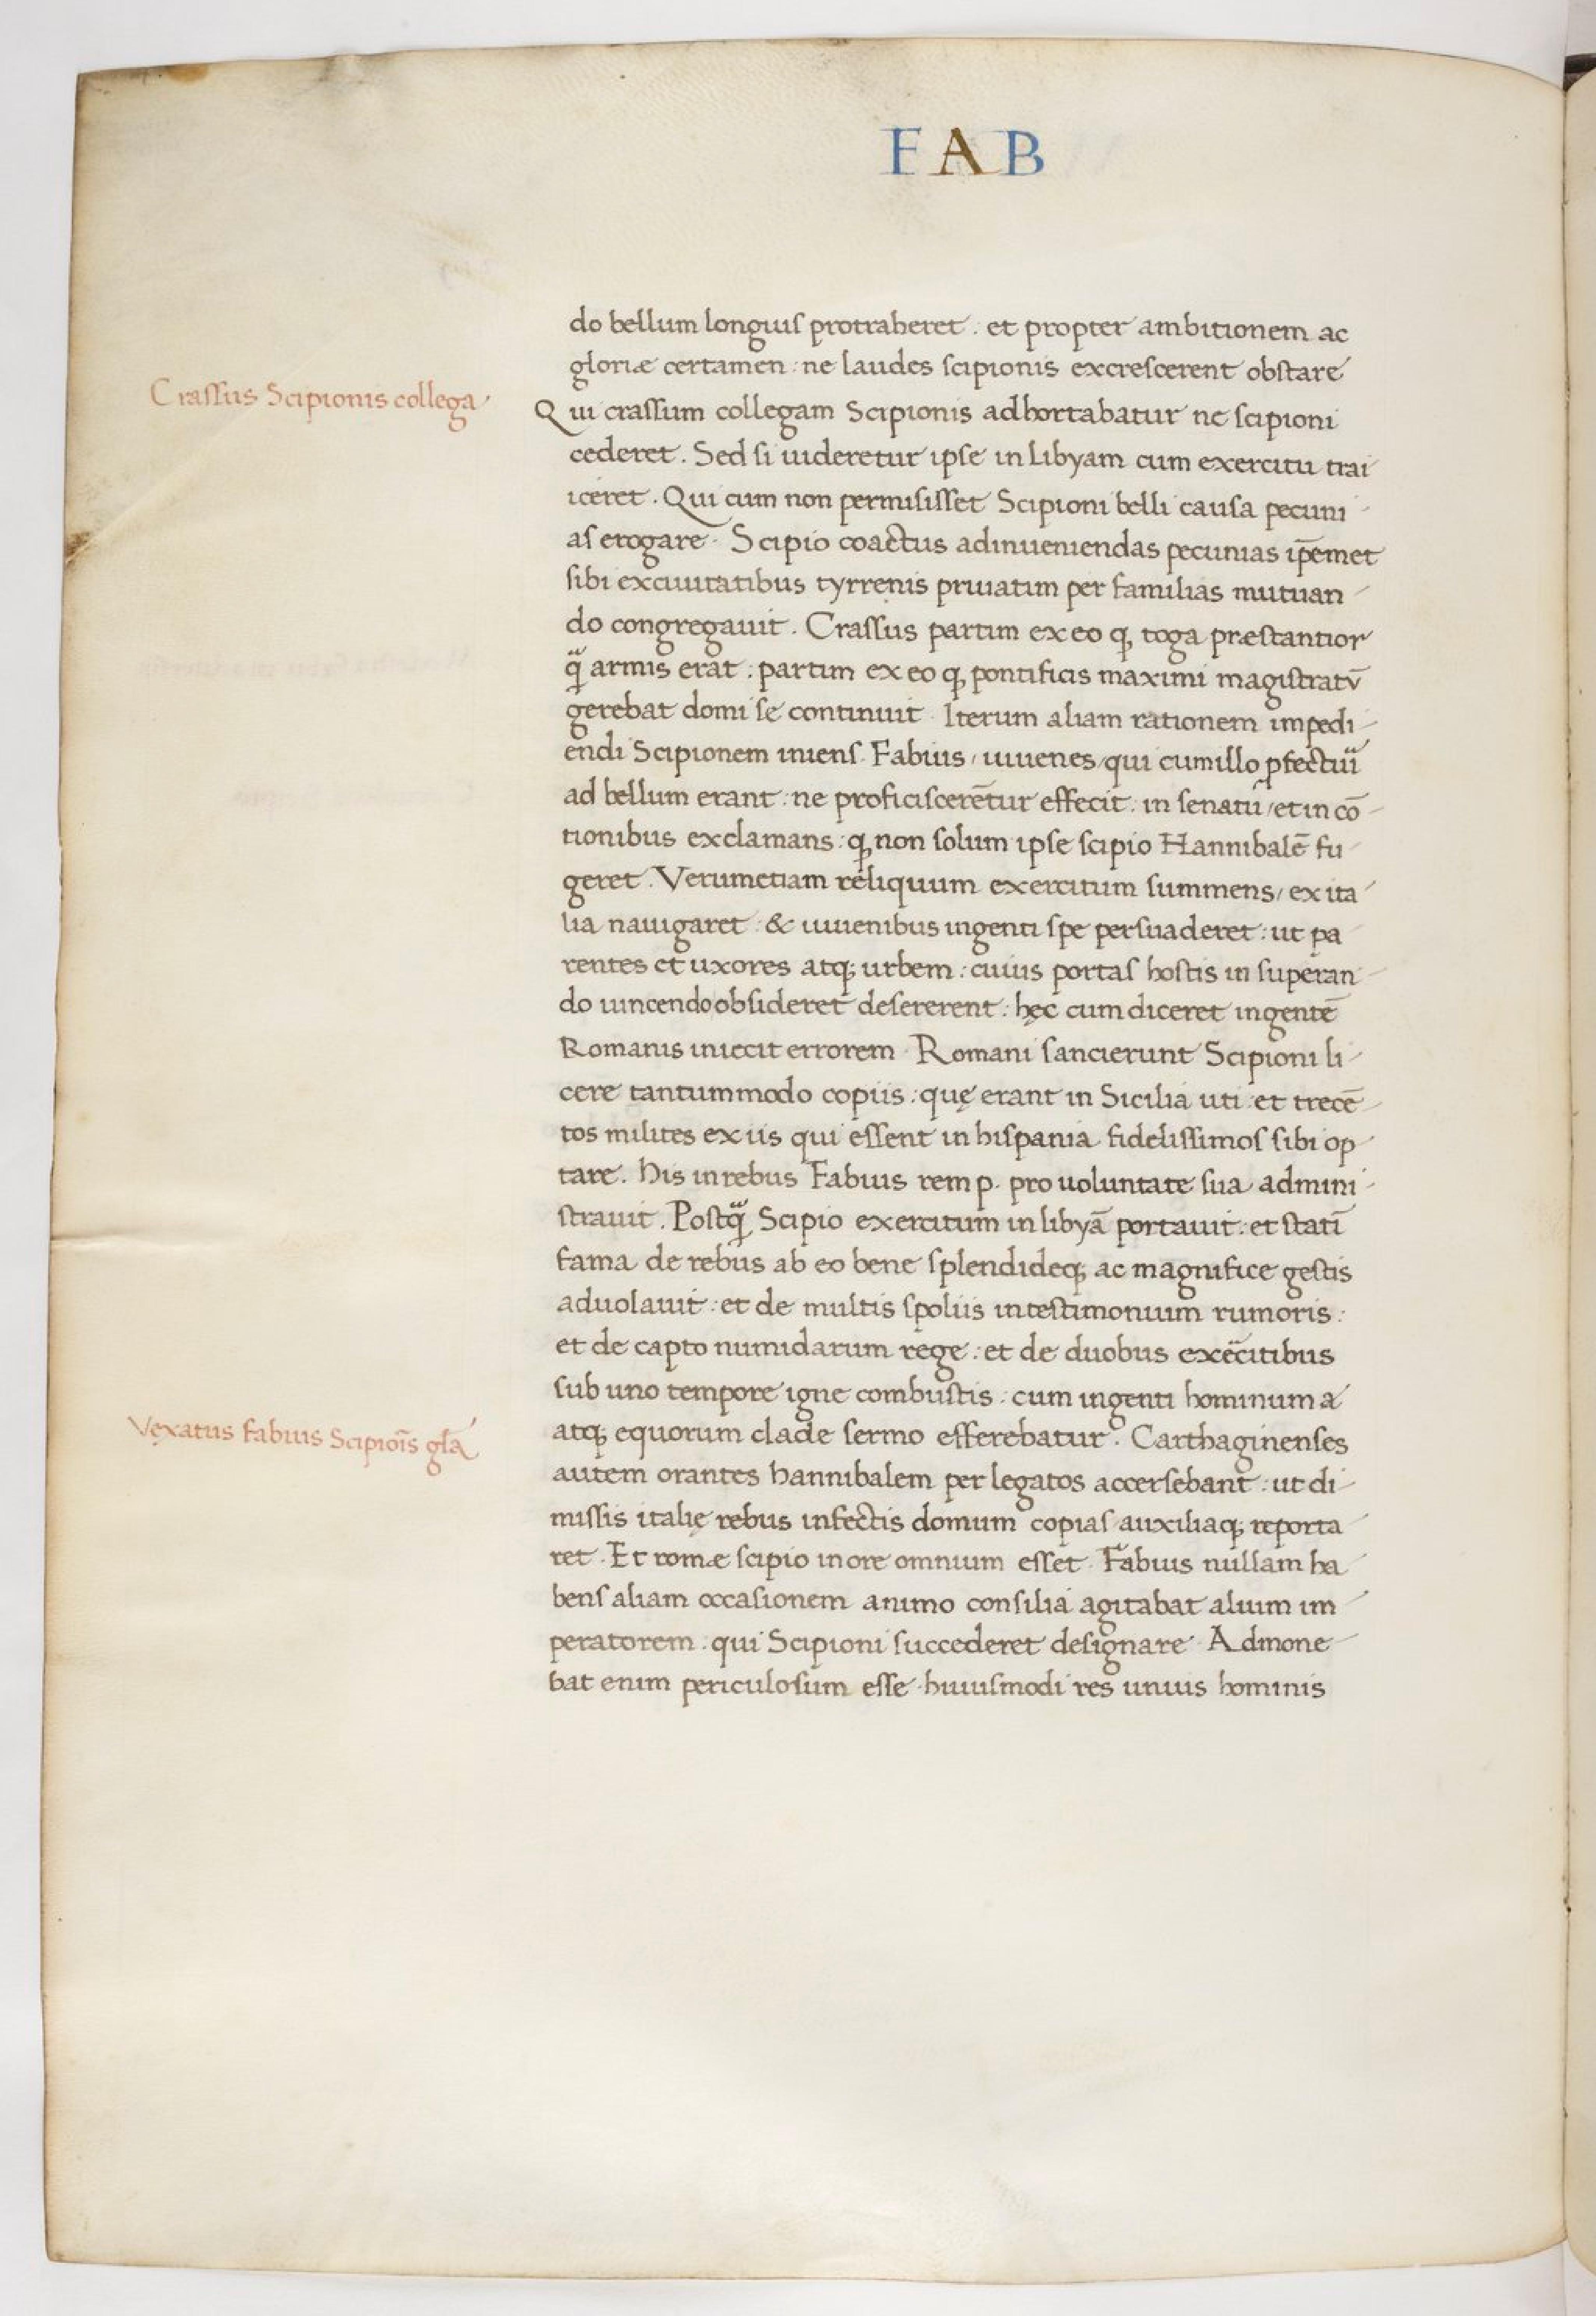 FAB
do bellum longius protraheret: et propter ambitionem ac
gloriæ certamen: ne laudes scipionis excrescerent obstare
Crassus Scipionis collega
Qui crassum collegam Scipionis adhortabatur ne scipioni
cederet. Sed si uideretur ipse in Libyam cum exercitu trai
iceret. Qui cum non permisisset Scipioni belli causa pecuni
as erogare. Scipio coactus adinueniendas pecunias ip̄emet
sibi exciuitatibus tyrrenis priuatim per familias mutuan
do congregauit. Crassus partim ex eo q; toga præstantior
q̃ armis erat: partim ex eo q; pontificis maximi magistratū
gerebat domi se continuit. Iterum aliam rationem impedi
endi Scipionem iniens. Fabius, iuuenes, qui cumillo ꝓfectuĩ
ad bellum erant: ne proficiscerẽtur effecit: in senatū, et in cō
tionibus exclamans: q; non solum ipse scipio Hannibalẽ fu
geret. Verumetiam reliquum exercitum summens, ex ita
lia nauigaret: & iuuenibus ingenti spe persuaderet: ut pa
rentes et uxores atq; urbem: cuius portas hostis in superan
do uincendo obsideret desererent: hęc cum diceret ingentē
Romanis iniecit errorem. Romani sancierunt Scipioni li
cere tantummodo copiis: quę erant in Sicilia uti: et trecē
tos milites ex iis qui essent in hispania fidelissimos sibi op
tare. his inrebus Fabius rem p. pro uoluntate sua admini
strauit. Postq̃ Scipio exercitum in libyā portauit: et statĩ
fama de rebus ab eo bene splendideq; ac magnifice gestis
aduolauit: et de multis spoliis intestimonium rumoris:
et de capto numidarum rege: et de duobus exẽcitibus
sub uno tempore igne combustis: cum ingenti hominum a
Vexatus fabius Scipiōis gl̄a
atq; equorum clade sermo efferebatur. Carthaginenses
autem orantes hannibalem per legatos accersebant: ut di
missis italię rebus infectis domum copias auxiliaq; reporta
ret. Et romæ scipio in ore omnium esset. Fabius nullam ha
bens aliam occasionem animo consilia agitabat alium im
peratorem: qui Scipioni succederet designare. Admone
bat enim periculosum esse huiusmodi res unius hominis